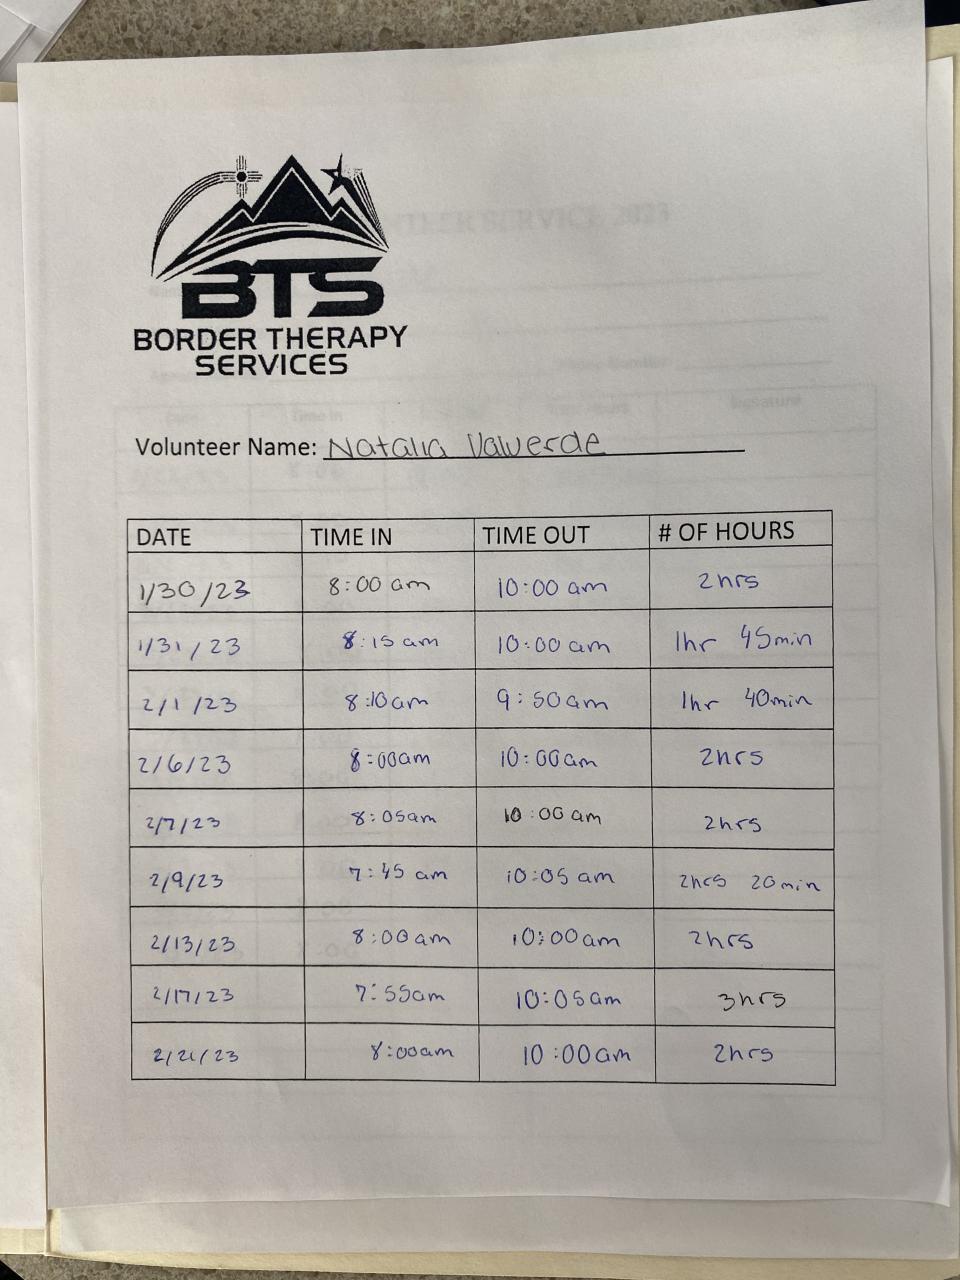 BTS
BORDER THERAPY
SERVICES
Volunteer Name: Natalia Valverde
DATE TIME IN TIME OUT # OF HOURS
1/30/23 8:00 am 10:00 am 2hrs
1/31/23 8:15 am 10:00 am 1hr 45min
2/1/23 8:10am 9:50am 1hr 40min
2/6/23 8:00am 10:00am 2hrs
2/7/23 8:05am 10:00 am 2hrs
2/9/23 7:45 am 10:05 am 2hrs 20min
2/13/23 8:00am 10:00am 2hrs
2/17/23 7:55am 10:05am 3hrs
2/21/23 8:00am 10:00am 2hrs